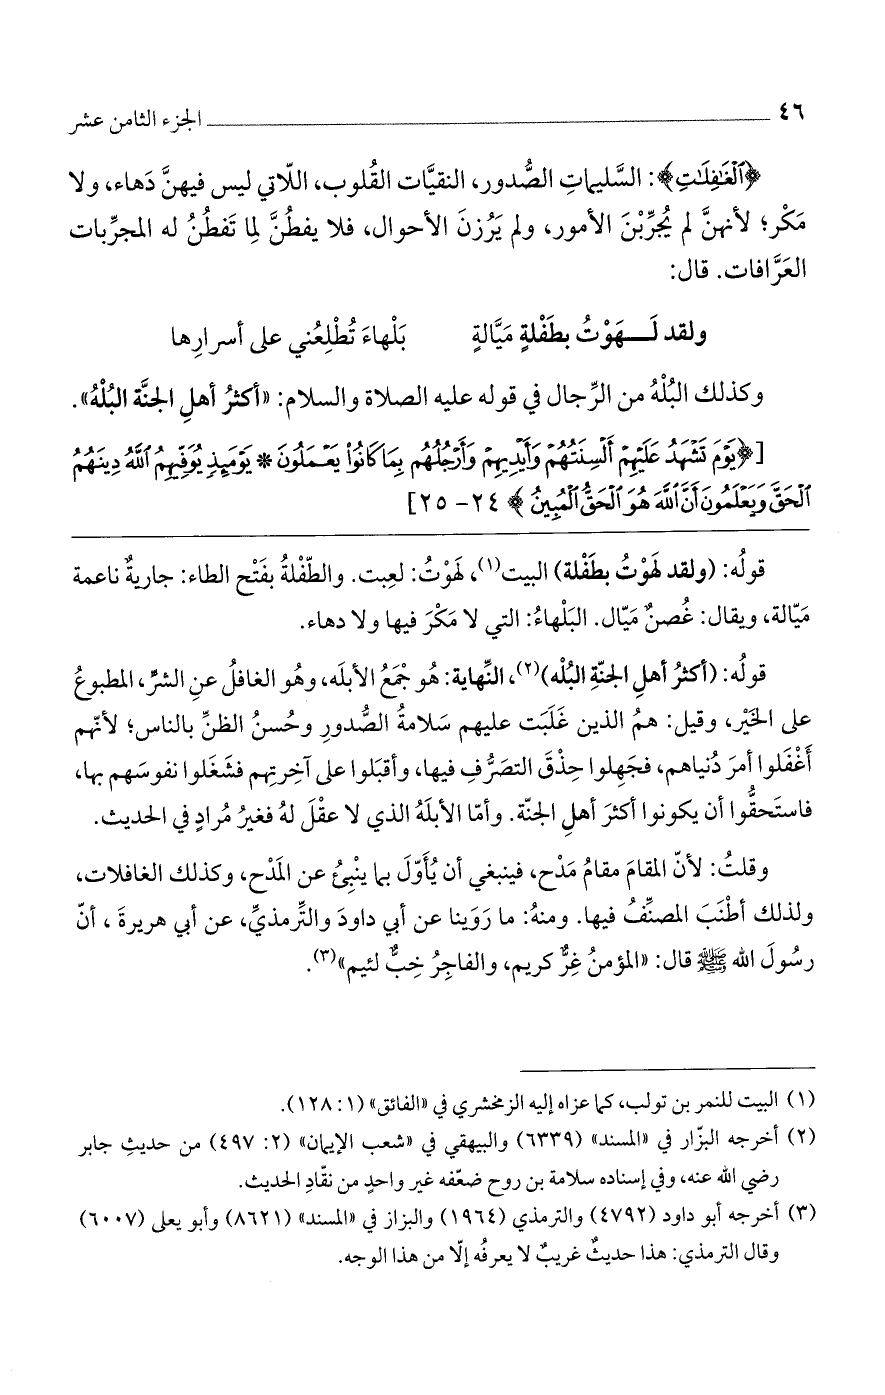 ٤٦ الجزء الثامن عشر
﴿ٱلْغَٰفِلَٰتِ﴾: السَّليماتِ الصُّدور، النقيَّات القُلوب، اللّاتي ليس فيهنَّ دَهاء، ولا
مَكْر؛ لأنهنَّ لم يُجرِّبْنَ الأمور، ولم يَرُزنَ الأحوال، فلا يفطُنَّ لِمَا تَفطُنُ له المجرِّبات
العَرَّافات. قال:
ولقد لَـهَوْتُ بطَفْلةٍ مَيَّالةٍ بَلْهاءَ تُطْلِعُني على أسرارِها
وكذلك البُلْهُ من الرِّجال في قوله عليه الصلاة والسلام: «أكثرُ أهلِ الجنَّة البُلْهُ».
[﴿يَوْمَ تَشْهَدُ عَلَيْهِمْ أَلْسِنَتُهُمْ وَأَيْدِيهِمْ وَأَرْجُلُهُم بِمَا كَانُوا۟ يَعْمَلُونَ * يَوْمَئِذٍ يُوَفِّيهِمُ ٱللَّهُ دِينَهُمُ
ٱلْحَقَّ وَيَعْلَمُونَ أَنَّ ٱللَّهَ هُوَ ٱلْحَقُّ ٱلْمُبِينُ﴾ ٢٤- ٢٥]
قولُه: (ولقد لهَوْتُ بطَفْلة) البيت(١)، لهَوْتُ: لعِبت. والطّفْلةُ بفَتْح الطاء: جاريةٌ ناعمة
مَيّالة، ويقال: غُصنٌ مَيّال. البَلْهاءُ: التي لا مَكْرَ فيها ولا دهاء.
قولُه: (أكثرُ أهلِ الجنّةِ البُلْه)(٢)، النِّهاية: هُو جْمَعُ الأبلَه، وهُو الغافلُ عنِ الشرِّ، المطبوعُ
على الخَيْر، وقيل: همُ الذين غَلَبَت عليهم سَلامةُ الصُّدورِ وحُسنُ الظنِّ بالناس؛ لأنّهم
أَغْفَلوا أمرَ دُنياهم، فجَهِلوا حِذْقَ التصَرُّفِ فيها، وأقبَلوا على آخِرتِهم فشَغَلوا نفوسَهم بها،
فاستَحقُّوا أن يكونوا أكثرَ أهلِ الجنّة. وأمّا الأبلَهُ الذي لا عقْلَ لهُ فغيرُ مُرادٍ في الحديث.
وقلتُ: لأنّ المقامَ مقامُ مَدْح، فينبغي أن يُأَوّلَ بما ينْبِئُ عن المَدْح، وكذلك الغافلات،
ولذلك أطْنَبَ المصنِّفُ فيها. ومنهُ: ما رَوَينا عن أبي داودَ والتِّرمذيِّ، عن أبي هريرةَ ، أنّ
رسُولَ الله ﷺ قال: «المؤمنُ غِرٌّ كريم، والفاجِرُ خِبٌّ لئيم»(٣).
(١) البيت للنمر بن تولب، كما عزاه إليه الزمخشري في «الفائق» (١: ١٢٨).
(٢) أخرجه البزّار في «المسند» (٦٣٣٩) والبيهقي في «شعب الإيمان» (٢: ٤٩٧) من حديثِ جابر
رضي الله عنه، وفي إسناده سلامة بن روح ضعّفه غير واحدٍ من نقّادِ الحديث.
(٣) أخرجه أبو داود (٤٧٩٢) والترمذي (١٩٦٤) والبزاز في «المسند» (٨٦٢١) وأبو يعلى (٦٠٠٧)
وقال الترمذي: هذا حديثٌ غريبٌ لا يعرفُه إلّا من هذا الوجه.